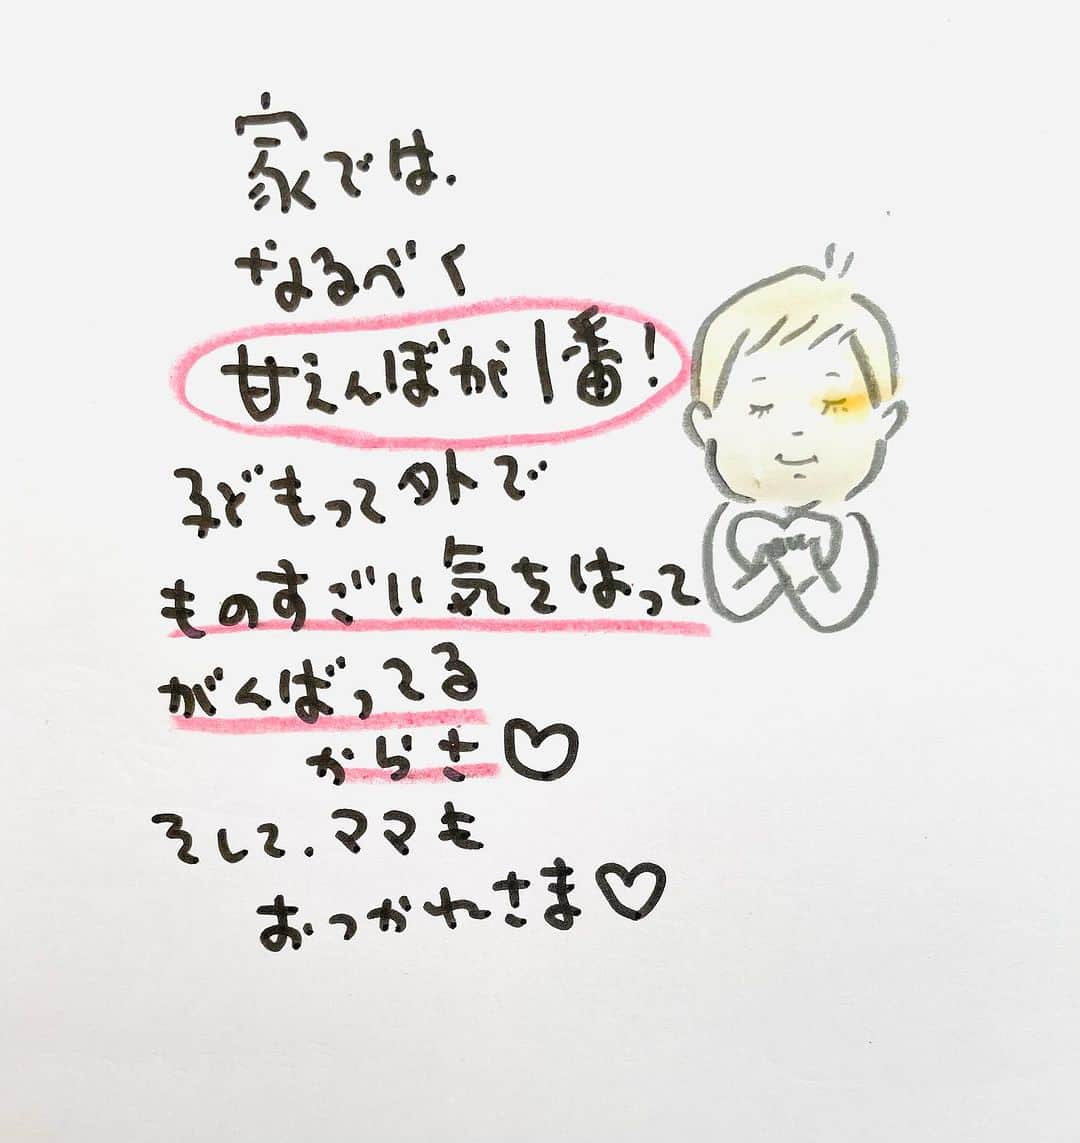 家では、
なるべく
甘えんぼが1番!
子どもって外で
ものすごい気をはって
がんばってる
からさ♡
そして、ママも
おつかれさま♡